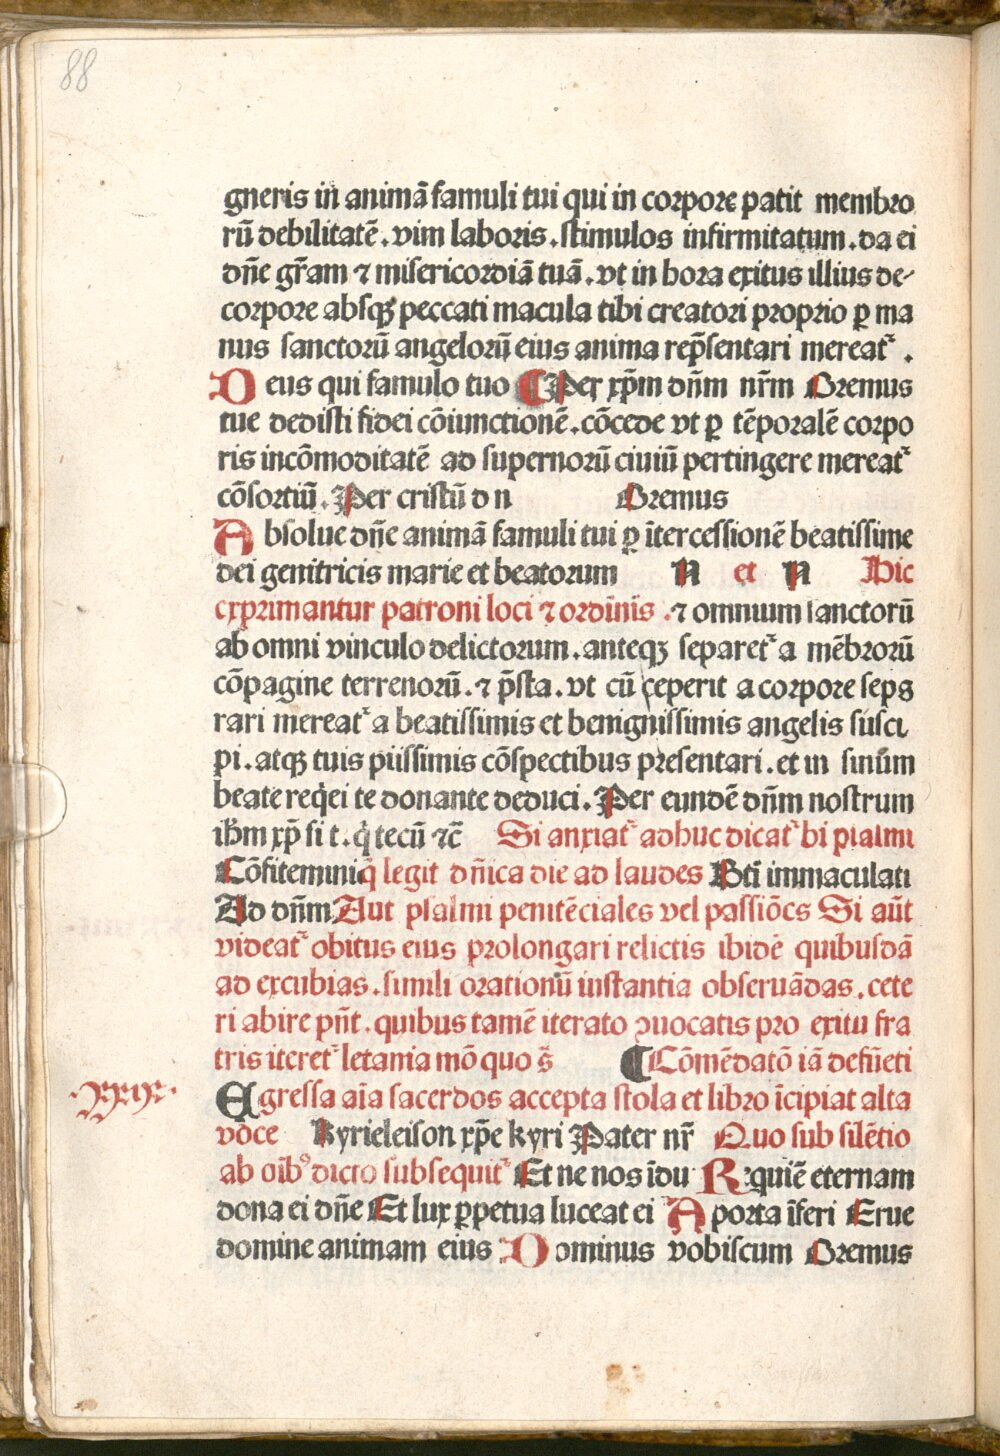 88
gneris in animā famuli tui qui in corpore patit membro
rū debilitatē. vim laboris. stimulos infirmitatum. da ei
dn̄e gr̄am ⁊ misericordiā tuā. vt in hora exitus illius de
corpore absqꝫ peccati macula tibi creatori proprio ꝑ ma
nus sanctorū angelorū eius anima rep̄sentari mereat᷑.
Deus qui famulo tuo ¶ Per xp̄m dn̄m nr̄m Oremus
tue dedisti fidei cōiunctionē. cōcede vt ꝑ tēporalē corpo
ris incōmoditatē ad supernorū ciuiū pertingere mereat᷑
cōsortiū. Per cristū d n Oremus
Absolue dn̄e animā famuli tui ꝑ ītercessionē beatissime
dei genitricis marie et beatorum N et N Hic
exprimantur patroni loci ⁊ ordinis. ⁊ omnium sanctorū
ab omni vinculo delictorum. anteqꝫ separet᷑ a mēbrorū
cōpagine terrenorū. ⁊ p̄sta. vt cū ceperit a corpore sepa
rari mereat᷑ a beatissimis et benignissimis angelis susci
pi. atqꝫ tuis piissimis cōspectibus presentari. et in sinūm
beate reqͥei te donante deduci. Per eundē dn̄m nostrum
ih̄m xp̄ fi t. qͥ tecū ⁊c̄ Si anxiat᷑ adhuc dicat᷑ hi psalmi
Cōfitemini q̄ legit dn̄ica die ad laudes Bt̄i immaculati
Ad dn̄m Aut psalmi penitēciales vel passiōes Si aūt
videat᷑ obitus eius prolongari relictis ibidē quibusdā
ad excubias. simili orationū instantia obseruādas. cete
ri abire pn̄t. quibus tamē iterato ꝯuocatis pro exitu fra
tris iteret᷑ letania mō quo s̄ ¶ Cōmēdatō iā defūcti
.xxix.
Egressa aīa sacerdos accepta stola et libro īcipiat alta
voce Kyrieleison xp̄e kyri Pater nr̄ Quo sub silētio
ab oībꝰ dicto subsequit᷑ Et ne nos īdu Requiē eternam
dona ei dn̄e Et lux ꝑpetua luceat ei A porta īferi Erue
domine animam eius Dominus vobiscum Oremus